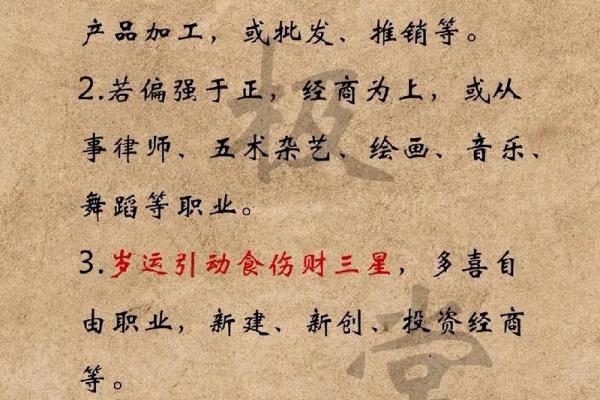 产品加工，或批发、推销等。
2.若偏强于正，经商为上，或从
事律师、五术杂艺、绘画、音乐、
舞蹈等职业。
3.岁运引动食伤财三星，多喜自
由职业，新建、新创、投资经商
等。
极
堂